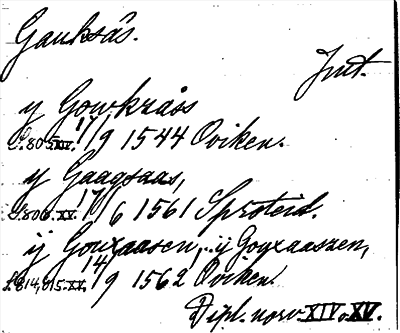 Gauksås.
Jmt.
y Gowkråss
S. 805 XIV. 17/9 1544 Oviken.
y Gaagsaas,
S. 808. XV. 17/6 1561 Sproteid.
ij Gouxaasen, ij Gouxaaszen,
S. 814, 815. XV. 14/9 1562 Oviken.
Dipl. norv XIV o XV.